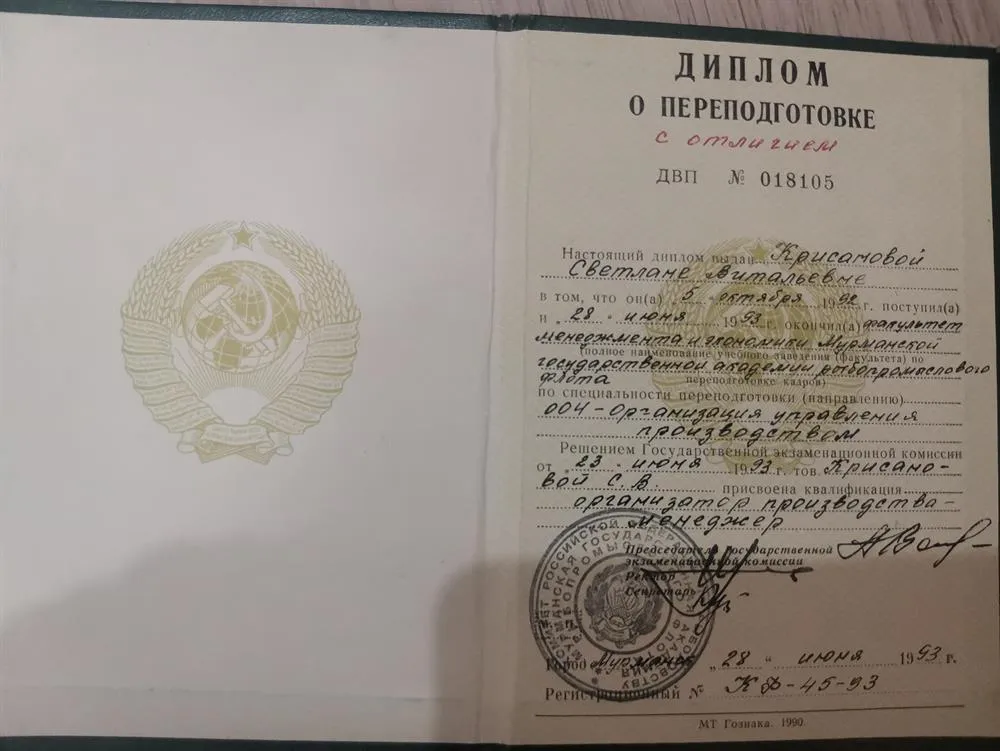 ДИПЛОМ
О ПЕРЕПОДГОТОВКЕ
с отличием
ДВП № 018105
Настоящий диплом выдан Крисановой
Светлане Витальевне
в том, что он(а) „5" октября 1992 г. поступил(а)
и „28" июня 1993 г. окончил(а) факультет
менеджмента и экономики Мурманской
(полное наименование учебного заведения (факультета) по
государственной академии рыбопромыслового
флота переподготовке кадров)
по специальности переподготовки (направлению)
004-организация управления
производством
Решением Государственной экзаменационной комиссии
от „23" июня 1993 г. тов. Крисано-
вой С.В. присвоена квалификация
организатор производства-
менеджер
Председатель государственной
экзаменационной комиссии
Ректор
Секретарь
Город Мурманск „28" июня 1993 г.
Регистрационный № КФ-45-93
МТ Гознака. 1990.